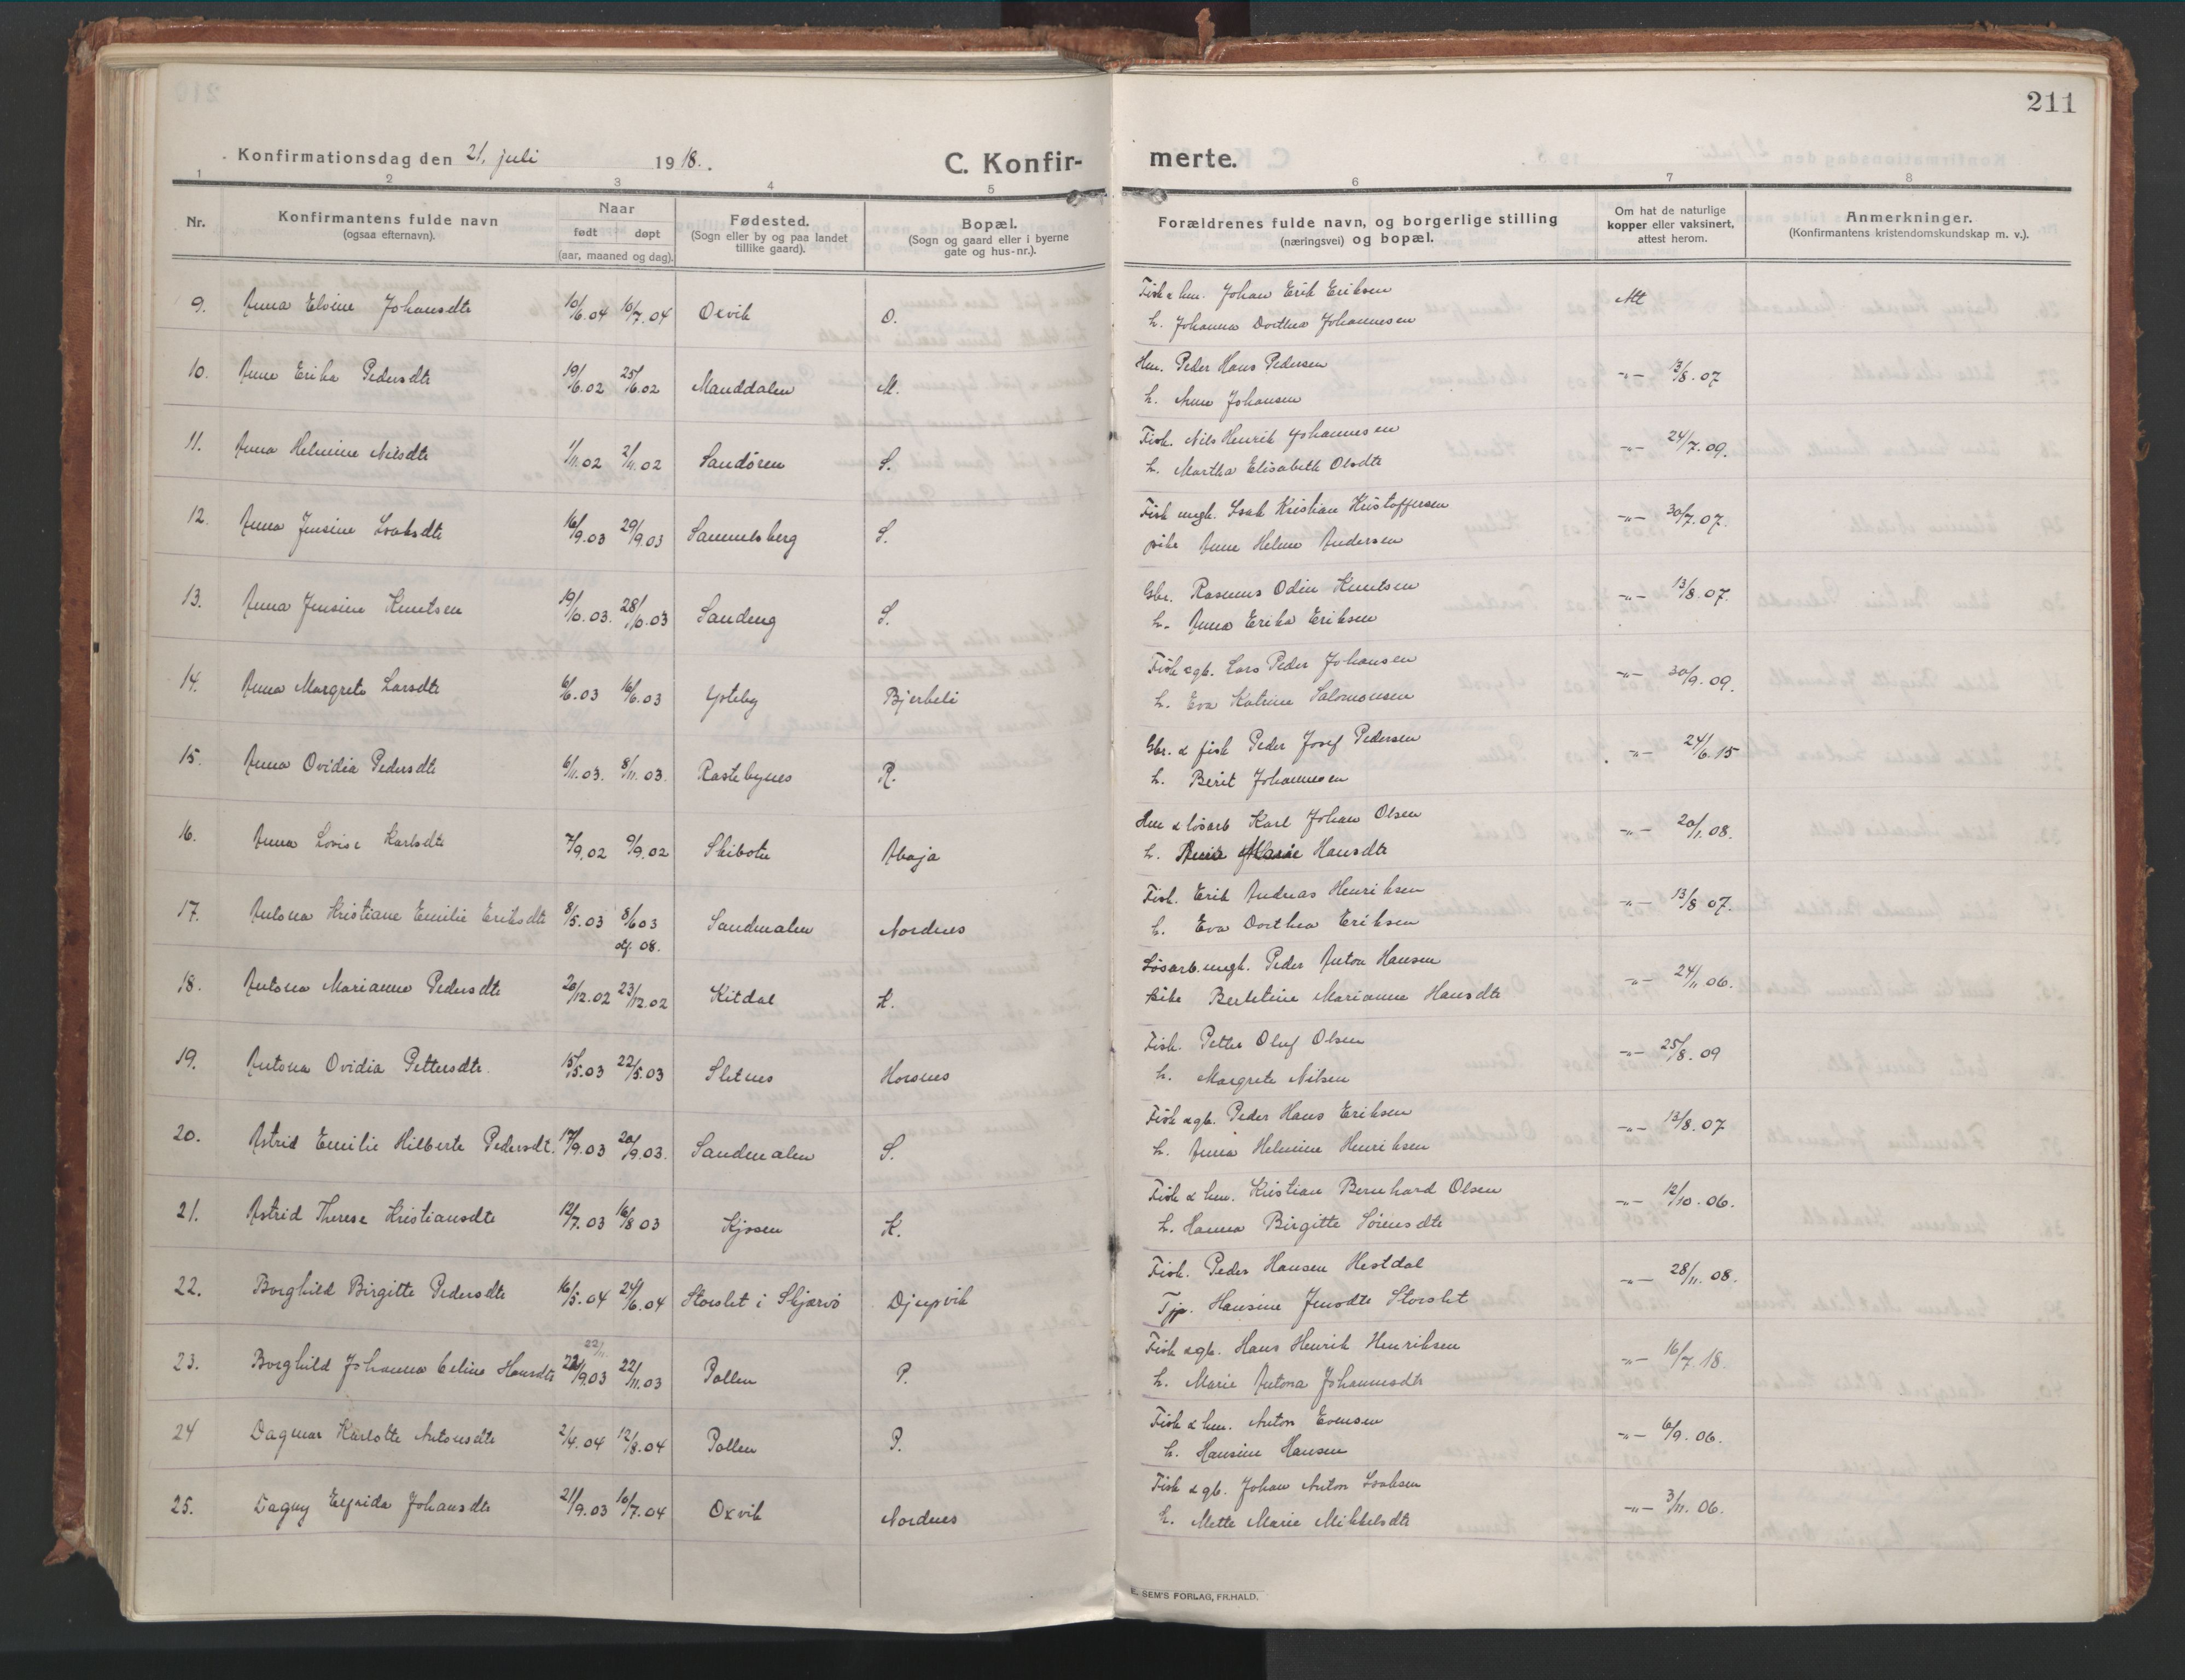 211
Konfirmationsdag den 21. juli 1918.
C. Konfir-
merte.
1 2 3 4 5 6 7 8
Nr.
Konfirmantens fulde navn
(ogsaa efternavn).
Naar
født døpt
(aar, maaned og dag).
Fødested.
(Sogn eller by og paa landet
tillike gaard).
Bopæl.
(Sogn og gaard eller i byerne
gate og hus-nr.).
Forældrenes fulde navn, og borgerlige stilling
(næringsvei) og bopæl.
Om hat de naturlige
kopper eller vaksinert,
attest herom.
Anmerkninger.
(Konfirmantens kristendomskundskap m. v.).
9. Anna Elvine Johansdtr 10/6.04 10/7.04 Oxvik O. Fisk & hm. Johan Erik Eriksen Att
h. Johanna Dorthea Johannesen
10. Anne Erika Pedersdtr 19/6.02 25/6.02 Manddalen M. Hm. Peder Hans Pedersen -"- 13/8.07
h. Anne Johansen
11. Anna Helmine Nilsdtr 1/11.02 2/11.02 Sandøren S. Fisk. Nils Henrik Johannesen -"- 24/7.09.
h. Martha Elisabeth Olsdtr
12. Anna Jensine Isaksdtr 16/9.03 29/9.03 Samuelsberg S. Fisk ungk. Isak Kristian Kristoffersen -"- 30/7.07.
pike Anne Helene Andersen
13. Anna Jensine Knutsen 19/6.03. 28/6.03 Sandeng S. Gbr. Rasmus Odin Knutsen -"- 13/8.07.
h. Anna Erika Eriksen
14. Anna Margrete Larsdtr 6/6.03 16/6.03 Yoteby Bjerkeli Fisk & gb. Lars Peder Johansen -"- 30/9.09.
h. Eva Katrine Salomonsen
15. Anna Ovidia Pedersdtr 6/11.03. 8/11.03. Rastebynes R. Gbr. & fisk Peder Josef Pedersen -"- 24/6.15
h. Berit Johannesen
16. Anna Lovise Karlsdtr 7/9.02 9/9.02 Skibotn Abaja Hm & løsarb Karl Johan Olsen -"- 20/1.08.
h. Marie Hansdtr
17. Antona Kristiane Emilie Eriksdtr 8/5.03 8/6 03 Sandmalen Nordnes Fisk. Erik Andreas Henriksen -"- 13/8 07.
08.
h. Eva Dorthea Eriksen
18. Antona Marianne Pedersdtr 20/12.02 23/12.02 Kitdal K. Løsarb. ungk. Peder Anton Hansen -"- 24/11 06.
pike Berletine Marianne Hansdtr
19. Antona Ovidia Pettersdtr. 15/5.03 22/5.03 Sletnes Horsnes Fisk. Petter Oluf Olsen -"- 25/8.09
h. Margrete Nilsen
20. Astrid Emilie Hilberte Pedersdt. 17/9.03 20/9.03. Sandmalen S. Fisk & gb. Peder Hans Eriksen -"- 13/8.07
h. Anna Helmine Henriksen
21. Astrid Therese Kristiansdtr 12/7.03 16/8 03 Kjosen K. Fisk & hm. Kristian Bernhard Olsen -"- 12/10.06.
h. Hanna Birgitte Sørensdtr
22. Borghild Birgitte Pedersdtr 16/5.04 24/6.04 Storslet i Skjærvö Djupvik Fisk. Peder Hansen Hestdal -"- 28/11.08.
Tjp. Hansine Jensdtr Storslet
22/11.
23. Borghild Johanna Celine Hansdtr 22/9.03 22/11.03 Pollen P. Fisk & gb. Hans Henrik Henriksen -"- 16/7.18.
h. Marie Antona Johannesdtr
24 Dagmar Karlotte Antonsdtr 2/4.04 12/8.04 Pollen P. Fisk & hm. Anton Evensen -"- 6/9.06.
h. Hansine Hansen
25. Dagny Elfrida Johansdtr 21/9.03 10/7.04 Oxvik Nordnes Fisk & gb. Johan Anton Isaksen -"- 3/11.06.
h. Mette Marie Mikkelsdtr
E. SEM'S FORLAG, FR.HALD.